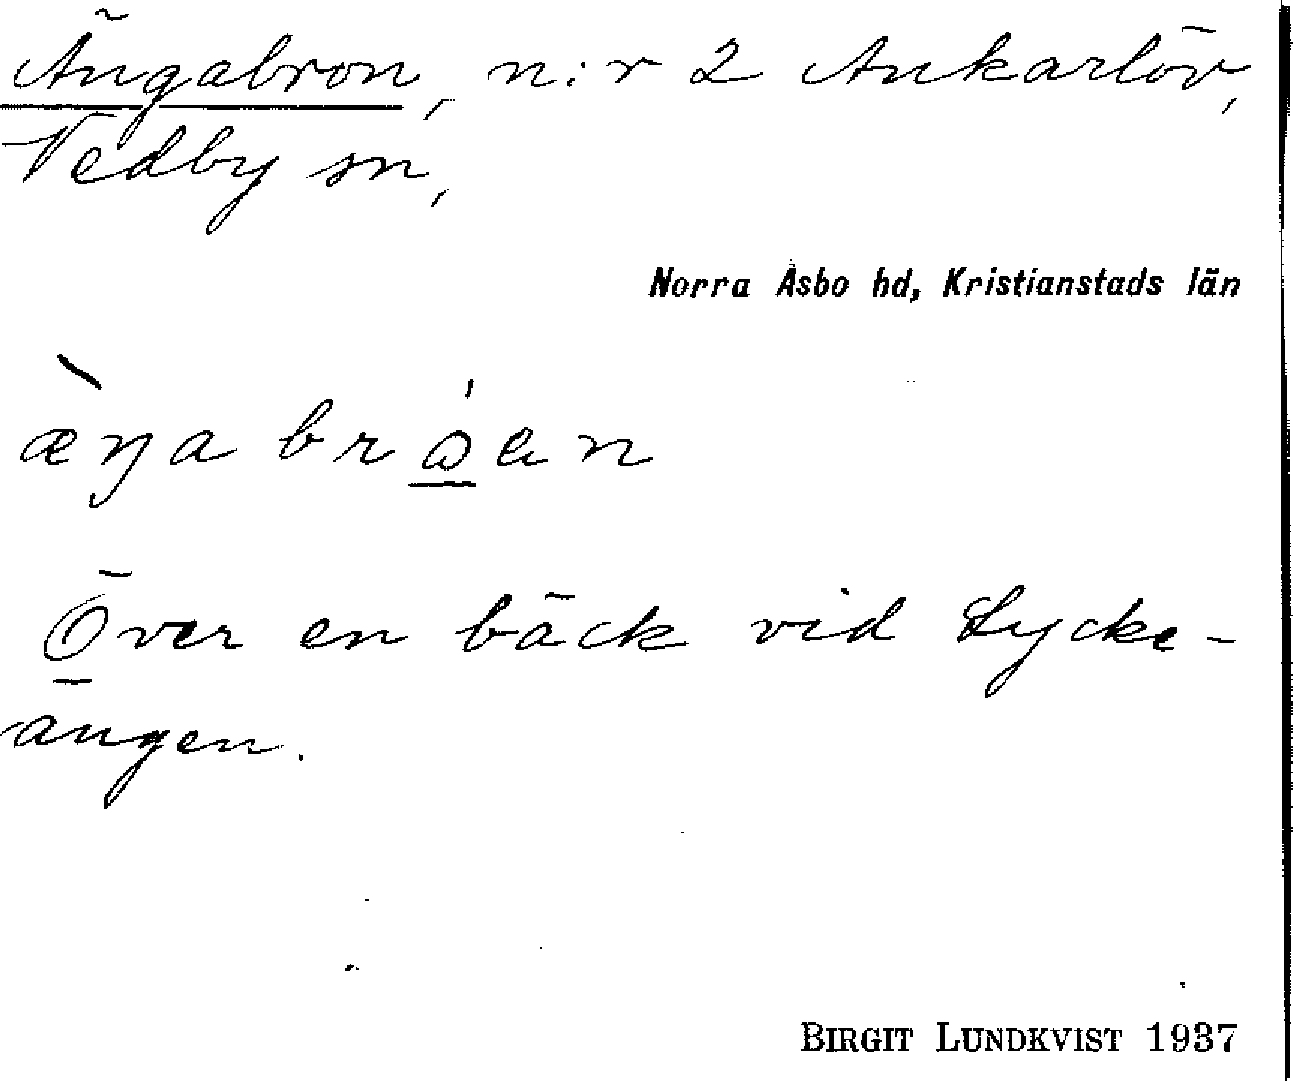 Ängabron, n:r 2 Ankarlöv,
Vedby sn,
Norra Åsbo hd, Kristianstads län
æ̀ŋa brǫ́en
Över en bäck vid Lycke-
ängen.
BIRGIT LUNDKVIST 1937